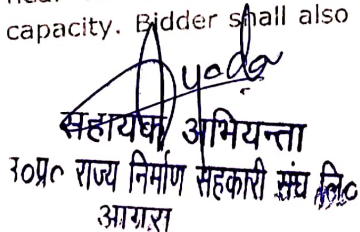 capacity. Bidder shall also
सहायक अभियन्ता
उ०प्र० राज्य निर्माण सहकारी संघ लि०
आगरा